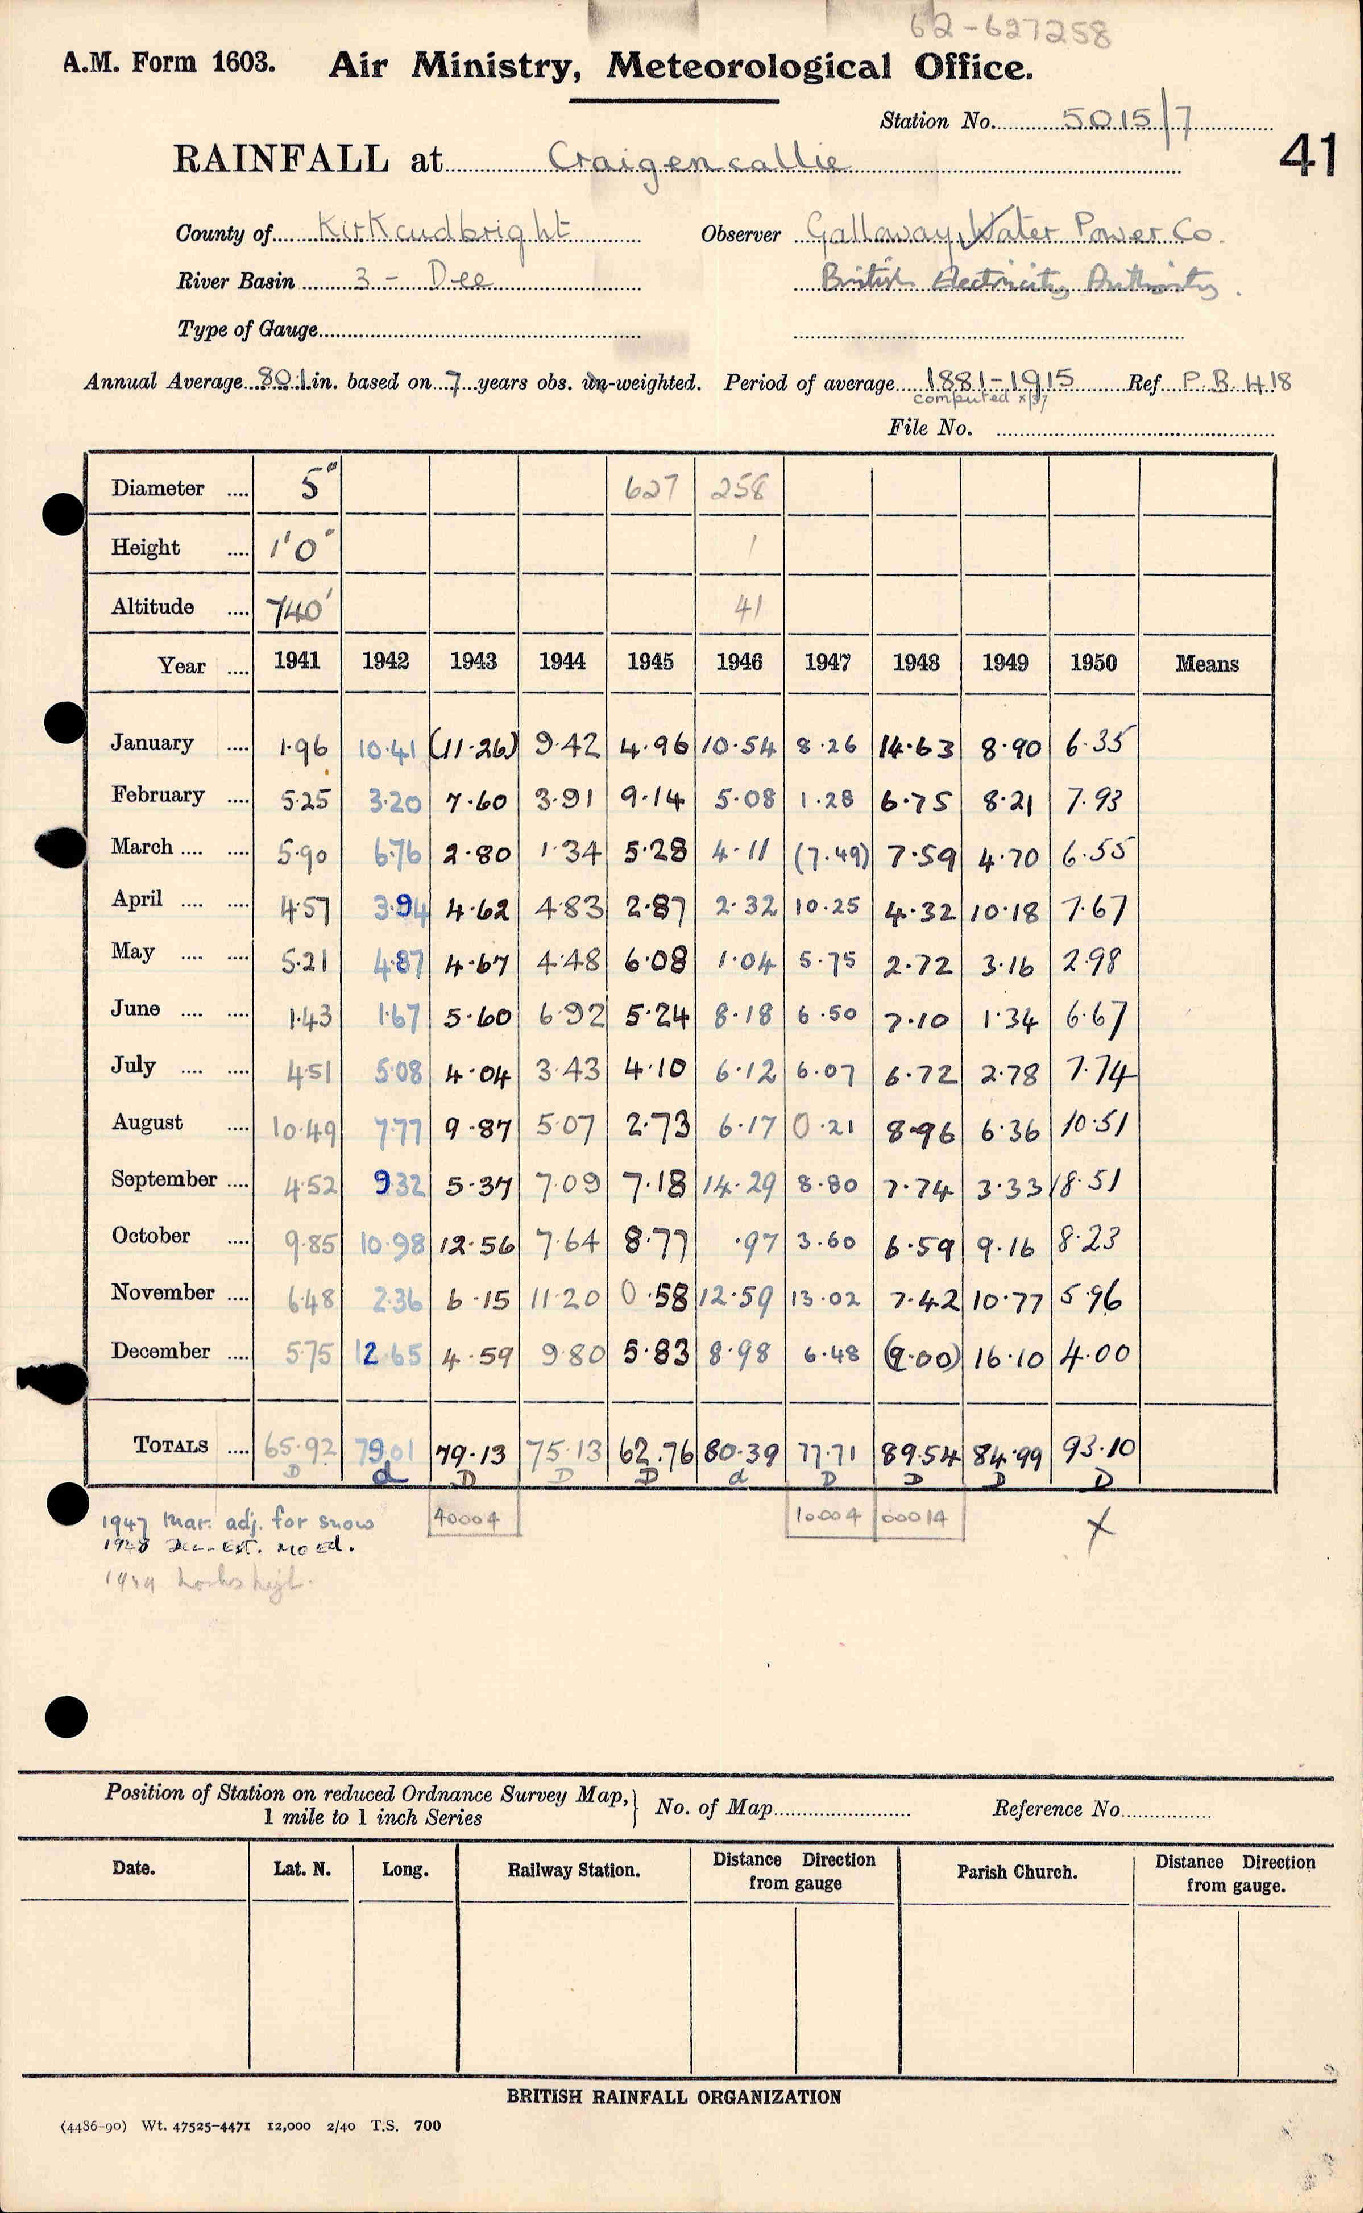 62-627258
A.M. Form 1603. Air Ministry, Meteorological Office.
Station No. 5015/7
41
RAINFALL at Craigencallie
County of Kirkcudbright Observer Galloway Water Power Co.
River Basin 3 - Dee British Electricity Authority.
Type of Gauge
Annual Average 80.1 in. based on 7 years obs. un-weighted. Period of average 1881-1915 Ref P.B. 418
computed x/37
File No.
Diameter .... 5" 627 258
Height .... 1'0" 1
Altitude .... 740' 41
Year .... 1941 1942 1943 1944 1945 1946 1947 1948 1949 1950 Means
January .... 1.96 10.41 (11.26) 9.42 4.96 10.54 8.26 14.63 8.90 6.35
February .... 5.25 3.20 7.60 3.91 9.14 5.08 1.28 6.75 8.21 7.93
March .... .... 5.90 6.76 2.80 1.34 5.28 4.11 (7.49) 7.59 4.70 6.55
April .... .... 4.57 3.94 4.62 4.83 2.87 2.32 10.25 4.32 10.18 7.67
May .... .... 5.21 4.87 4.67 4.48 6.08 1.04 5.75 2.72 3.16 2.98
June .... .... 1.43 1.67 5.60 6.92 5.24 8.18 6.50 7.10 1.34 6.67
July .... .... 4.51 5.08 4.04 3.43 4.10 6.12 6.07 6.72 2.78 7.74
August .... 10.49 7.77 9.87 5.07 2.73 6.17 0.21 8.96 6.36 10.51
September .... 4.52 9.32 5.37 7.09 7.18 14.29 8.80 7.74 3.33 18.51
October .... 9.85 10.98 12.56 7.64 8.77 .97 3.60 6.59 9.16 8.23
November .... 6.48 2.36 6.15 11.20 0.58 12.59 13.02 7.42 10.77 5.96
December .... 5.75 12.65 4.59 9.80 5.83 8.98 6.48 (9.00) 16.10 4.00
TOTALS .... 65.92 79.01 79.13 75.13 62.76 80.39 77.71 89.54 84.99 93.10
D d D D D d D D D D
40004 10004 00014 X
1947 Mar. adj. for snow
1948 Dec. Est. MO Ed.
Position of Station on reduced Ordnance Survey Map, 1 mile to 1 inch Series } No. of Map Reference No.
Date. Lat. N. Long. Railway Station. Distance Direction from gauge Parish Church. Distance Direction from gauge.
BRITISH RAINFALL ORGANIZATION
(4486-90) Wt. 47525-4471 12,000 2/40 T.S. 700